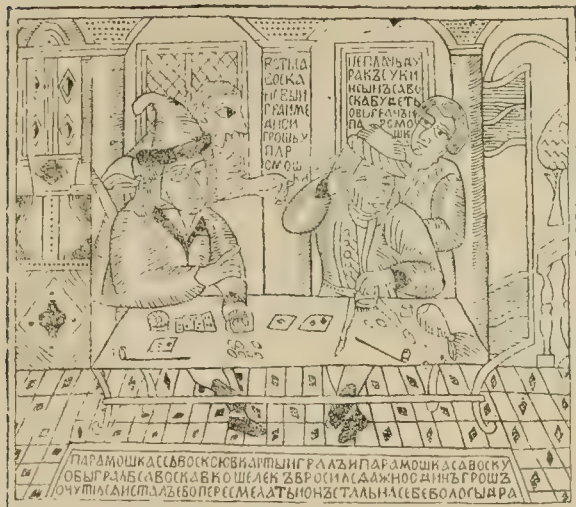 ВОСКА
НЕВЫИ
ГРАЛМЕ
ГРОШЬУ
ПАР
ОМОШ
НЕПЛАЧЬДУ
РАКЪСУКИ
НСЫНЪСАВО
СКАБУДЕТЬ
ПАРАМОШКАССАВОСКОЮВКАРТЫИГРАЛЪИПАРАМОШКАСАВОСКУ
ОБЫГРАЛЪСАВОСКАВКОШЕЛЕКЪБРОСИЛСДАЖНОСДИНЪГРОШЪ
ОЧУТИЛСДИСТАЛЪЕВОПЕРЕСМЕЛАТЬИОНЪСТАЛЬНАСЕБЕВОЛОСЫДРА